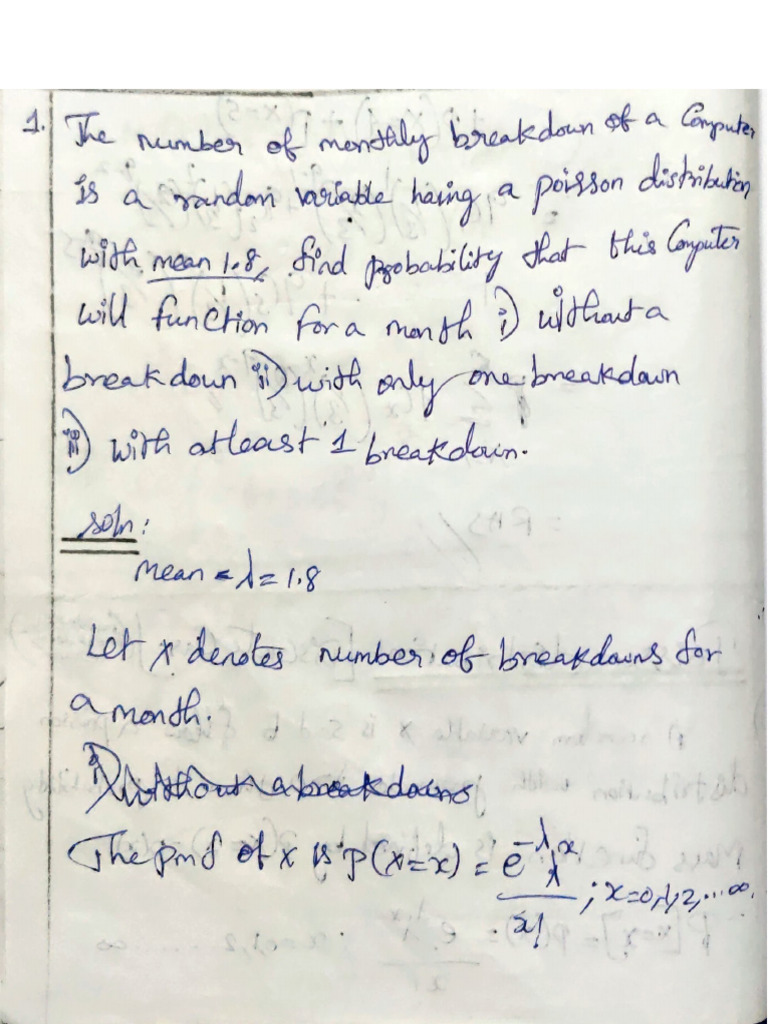 1. The number of monthly breakdown of a Computer
is a random variable having a poisson distribution
with mean 1.8, find probability that this Computer
will function for a month i) without a
breakdown ii) with only one breakdown
iii) with atleast 1 breakdown.
soln:
mean = λ = 1.8
Let X denotes number of breakdowns for
a month.
i) Without a breakdowns
The pmf of X is P(X=x) = e^-λ λ^x / x! ; x=0,1,2,...∞.